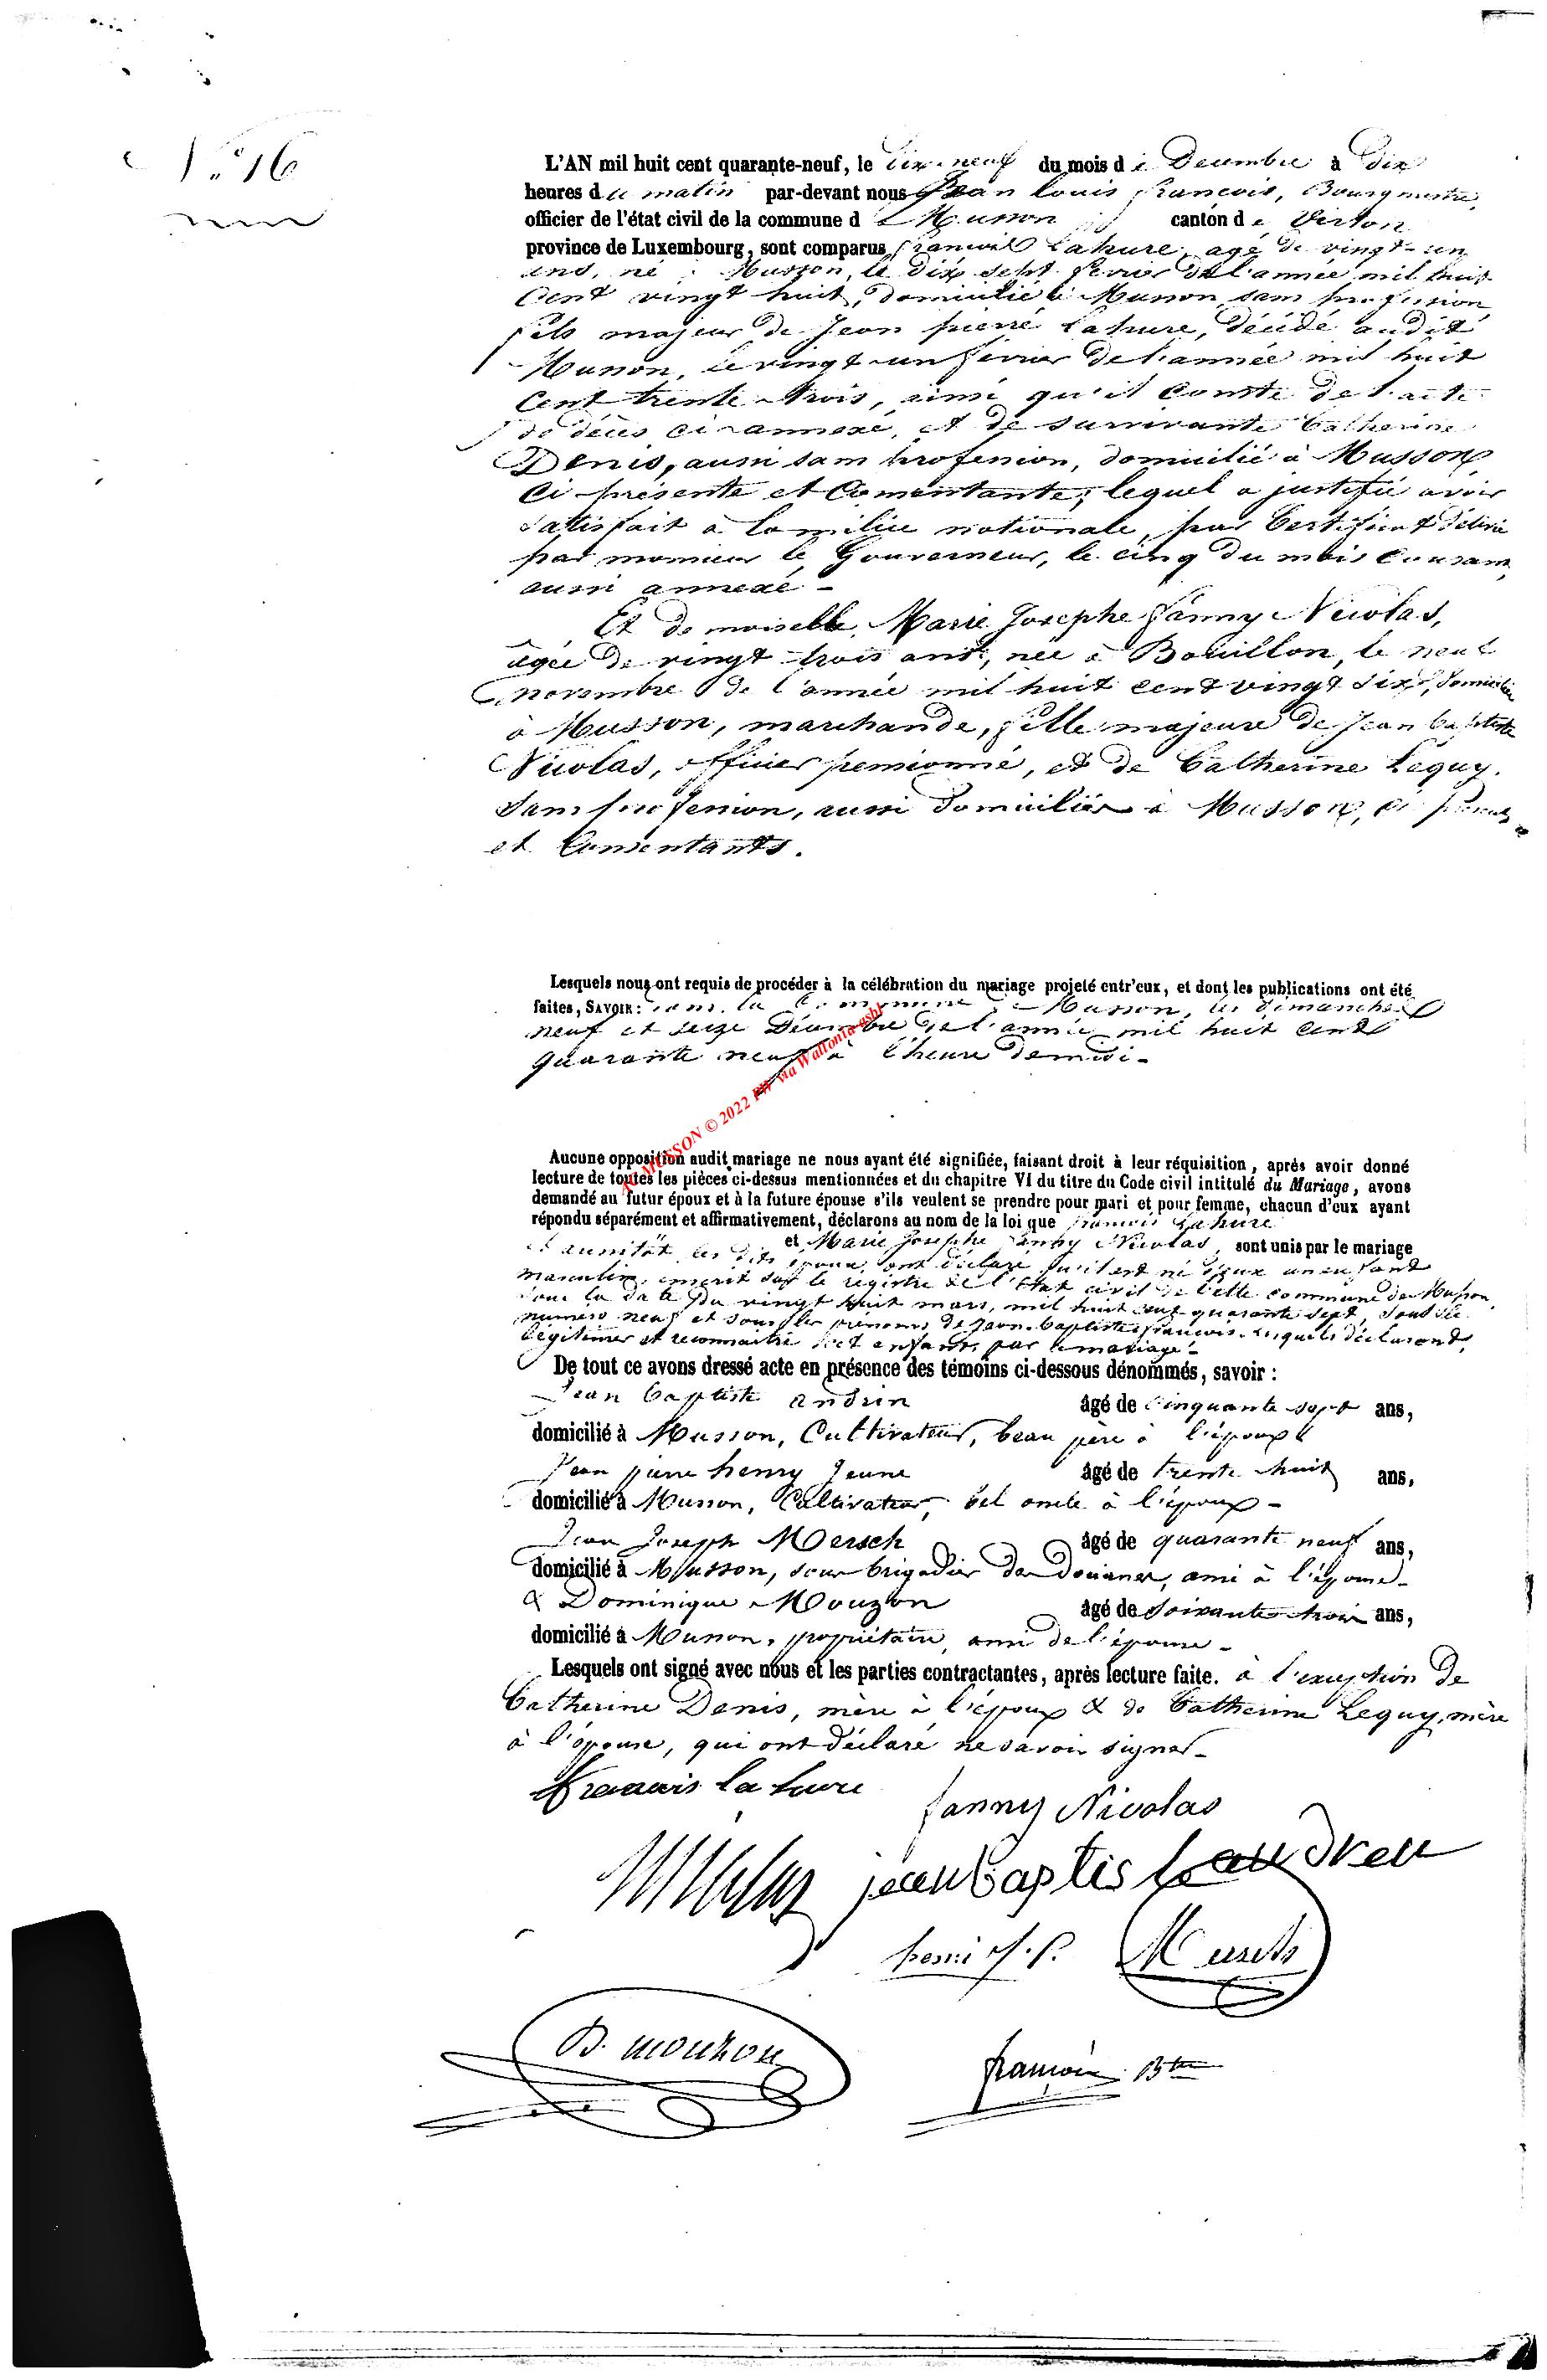 N° 16
L'AN mil huit cent quarante-neuf, le dix-neuf du mois de Decembre à dix
heures du matin par-devant nous Jean Louis françois, Bourgmestre,
officier de l'état civil de la commune de Musson canton de Virton
province de Luxembourg, sont comparus françois Lahure, agé de vingt-un
ans, né à Musson, le dix sept fevrier de l'année mil huit
Cent vingt huit, domicilié à Musson sans profession
fils majeur de Jean pierre Lahure, décédé audit
Musson, le vingt un fevrier de l'année mil huit
Cent trente trois, ainsi qu'il Conste de l'acte
de décès ci-annexé, et de survivante Catherine
Denis, aussi sans profession, domicilié à Musson,
Ci présente et Consentante; lequel a justifié avoir
satisfait à la milice nationale, par Certificat délivré
par monsieur le Gouverneur, le cinq du mois Courant,
aussi annexé -
Et demoiselle, Marie Josephe fanny Nicolas,
agée de vingt trois ans, née à Bouillon, le neuf
novembre de l'année mil huit cent vingt six, domiciliée
à Musson, marchande, fille majeure de Jean baptiste
Nicolas, officier pensionné, et de Catherine Lequy,
sans profession, aussi domiciliés à Musson, ci présents
et Consentants.
Lesquels nous ont requis de procéder à la célébration du mariage projeté entr'eux, et dont les publications ont été
faites, SAVOIR : dans la Commune de Musson, les dimanches
neuf et seize Décembre de l'année mil huit cent
quarante neuf à l'heure de midi -
IG MUSSON © 2022 PW via Wallonia asbl
Aucune opposition audit mariage ne nous ayant été signifiée, faisant droit à leur réquisition, après avoir donné
lecture de toutes les pièces ci-dessus mentionnées et du chapitre VI du titre du Code civil intitulé du Mariage, avons
demandé au futur époux et à la future épouse s'ils veulent se prendre pour mari et pour femme, chacun d'eux ayant
répondu séparément et affirmativement, déclarons au nom de la loi que françois Lahure
et Marie Josephe fanny Nicolas, sont unis par le mariage
et aussitôt les dits époux ont déclaré qu'il est né d'eux un enfant
masculin, inscrit sur le registre de l'état civil de cette commune de Musson,
sous la date du vingt huit mars, mil huit cent quarante sept, sous le
numéro neuf et sous les prénoms de Jean-baptiste françois, lesquels déclarent
légitimer et reconnaitre cet enfant, par ce mariage -
De tout ce avons dressé acte en présence des témoins ci-dessous dénommés, savoir :
Jean baptiste andrin âgé de Cinquante sept ans,
domicilié à Musson, Cultivateur, beau père à l'époux
Jean pierre henry Jeune âgé de trente huit ans,
domicilié à Musson, Cultivateur, bel oncle à l'époux -
Jean Joseph Mersch âgé de quarante neuf ans,
domicilié à Musson, sous brigadier de Douanes, ami à l'épouse -
& Dominique Mouzon âgé de soixante trois ans,
domicilié à Musson, propriétaire, ami de l'épouse -
Lesquels ont signé avec nous et les parties contractantes, après lecture faite. à l'exception de
Catherine Denis, mère à l'époux & de Catherine Lequy, mère
à l'épouse, qui ont déclaré ne savoir signer -
francois la hure
fanny Nicolas
Nicolas jean baptiste andren
henri J. P. Mersch
D. mouzon
françois Btre